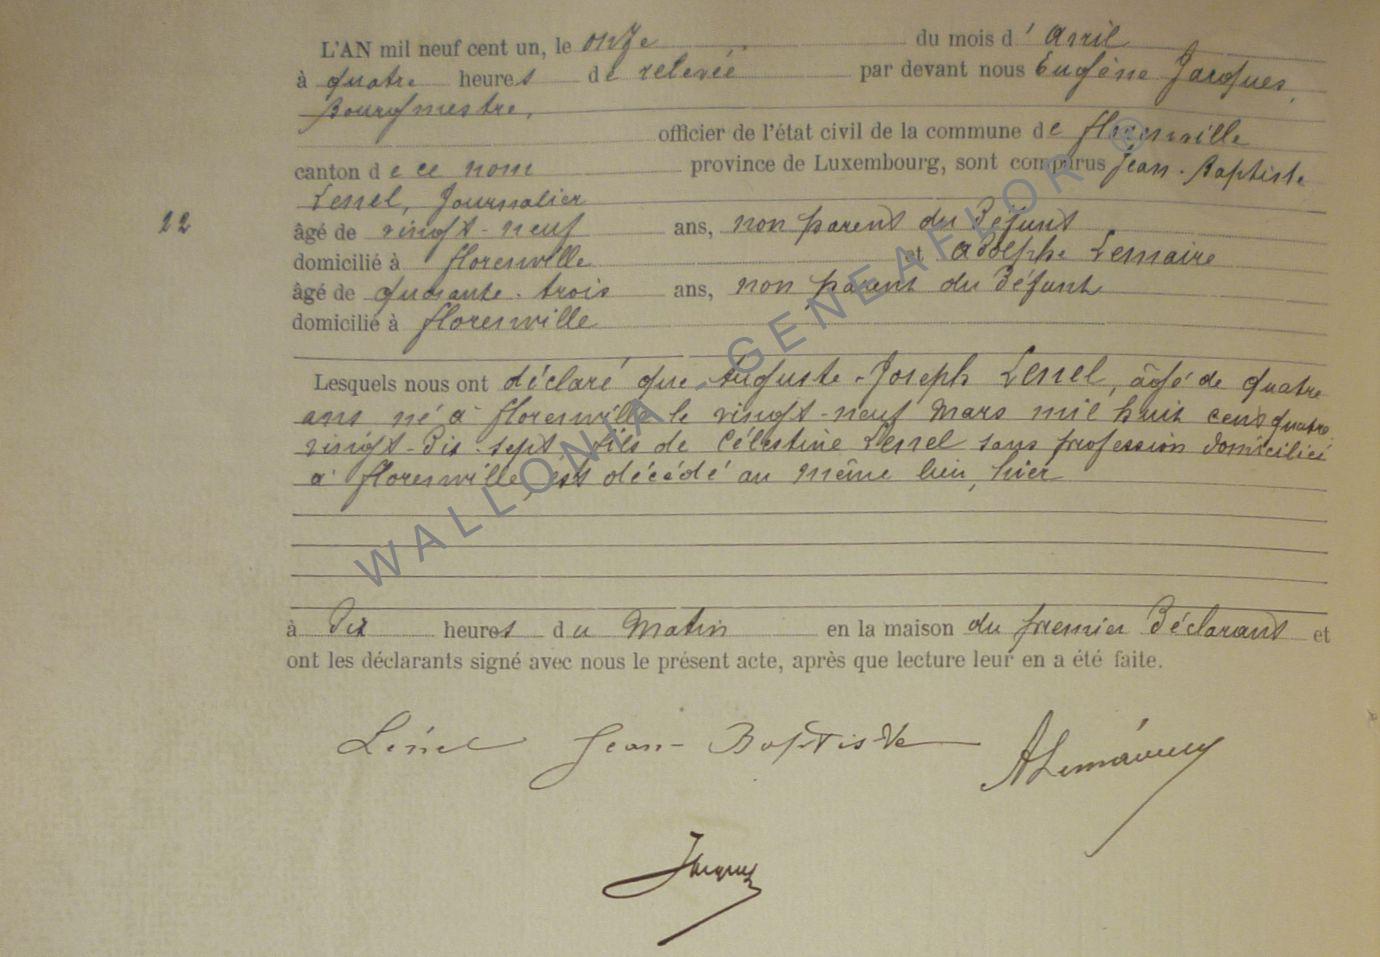 L'AN mil neuf cent un, le onze du mois d'Avril
à quatre heures de relevée par devant nous Eugène Jacques,
Bourgmestre,
officier de l'état civil de la commune de florenville
canton de ce nom province de Luxembourg, sont comparus Jean-Baptiste
Lenel, Journalier
22
âgé de vingt-neuf ans, non parent du Défunt
domicilié à florenville et Adolphe Lemaire
âgé de quarante-trois ans, non parent du Défunt
domicilié à florenville
Lesquels nous ont déclaré que Auguste-Joseph Lenel, âgé de quatre
ans né à florenville le vingt-neuf Mars mil huit cent quatre
vingt-Dix-sept fils de Célestine Lenel sans profession domiciliée
à florenville, est décédé au même lieu, hier
à Dix heures du Matin en la maison du premier Déclarant et
ont les déclarants signé avec nous le présent acte, après que lecture leur en a été faite.
Lenel Jean-Baptiste
ALemaire
Jacques
WALLONIA - GENEAFLOR ®